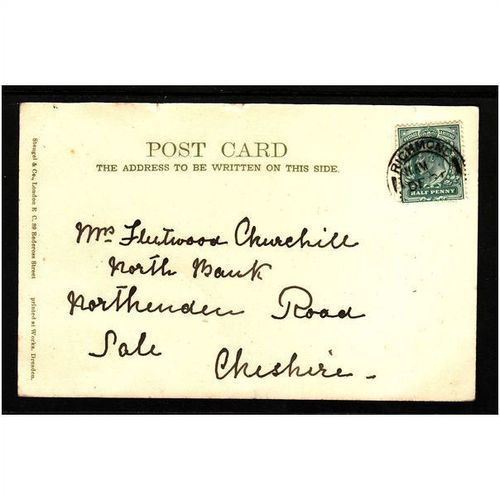 POST CARD
THE ADDRESS TO BE WRITTEN ON THIS SIDE.
RICHMOND
HALF PENNY
Mrs Fleetwood Churchill
North Bank
Northenden Road
Sale
Cheshire.
Stengel & Co., London E. C. 39 Redcross Street
printed at Works, Dresden.